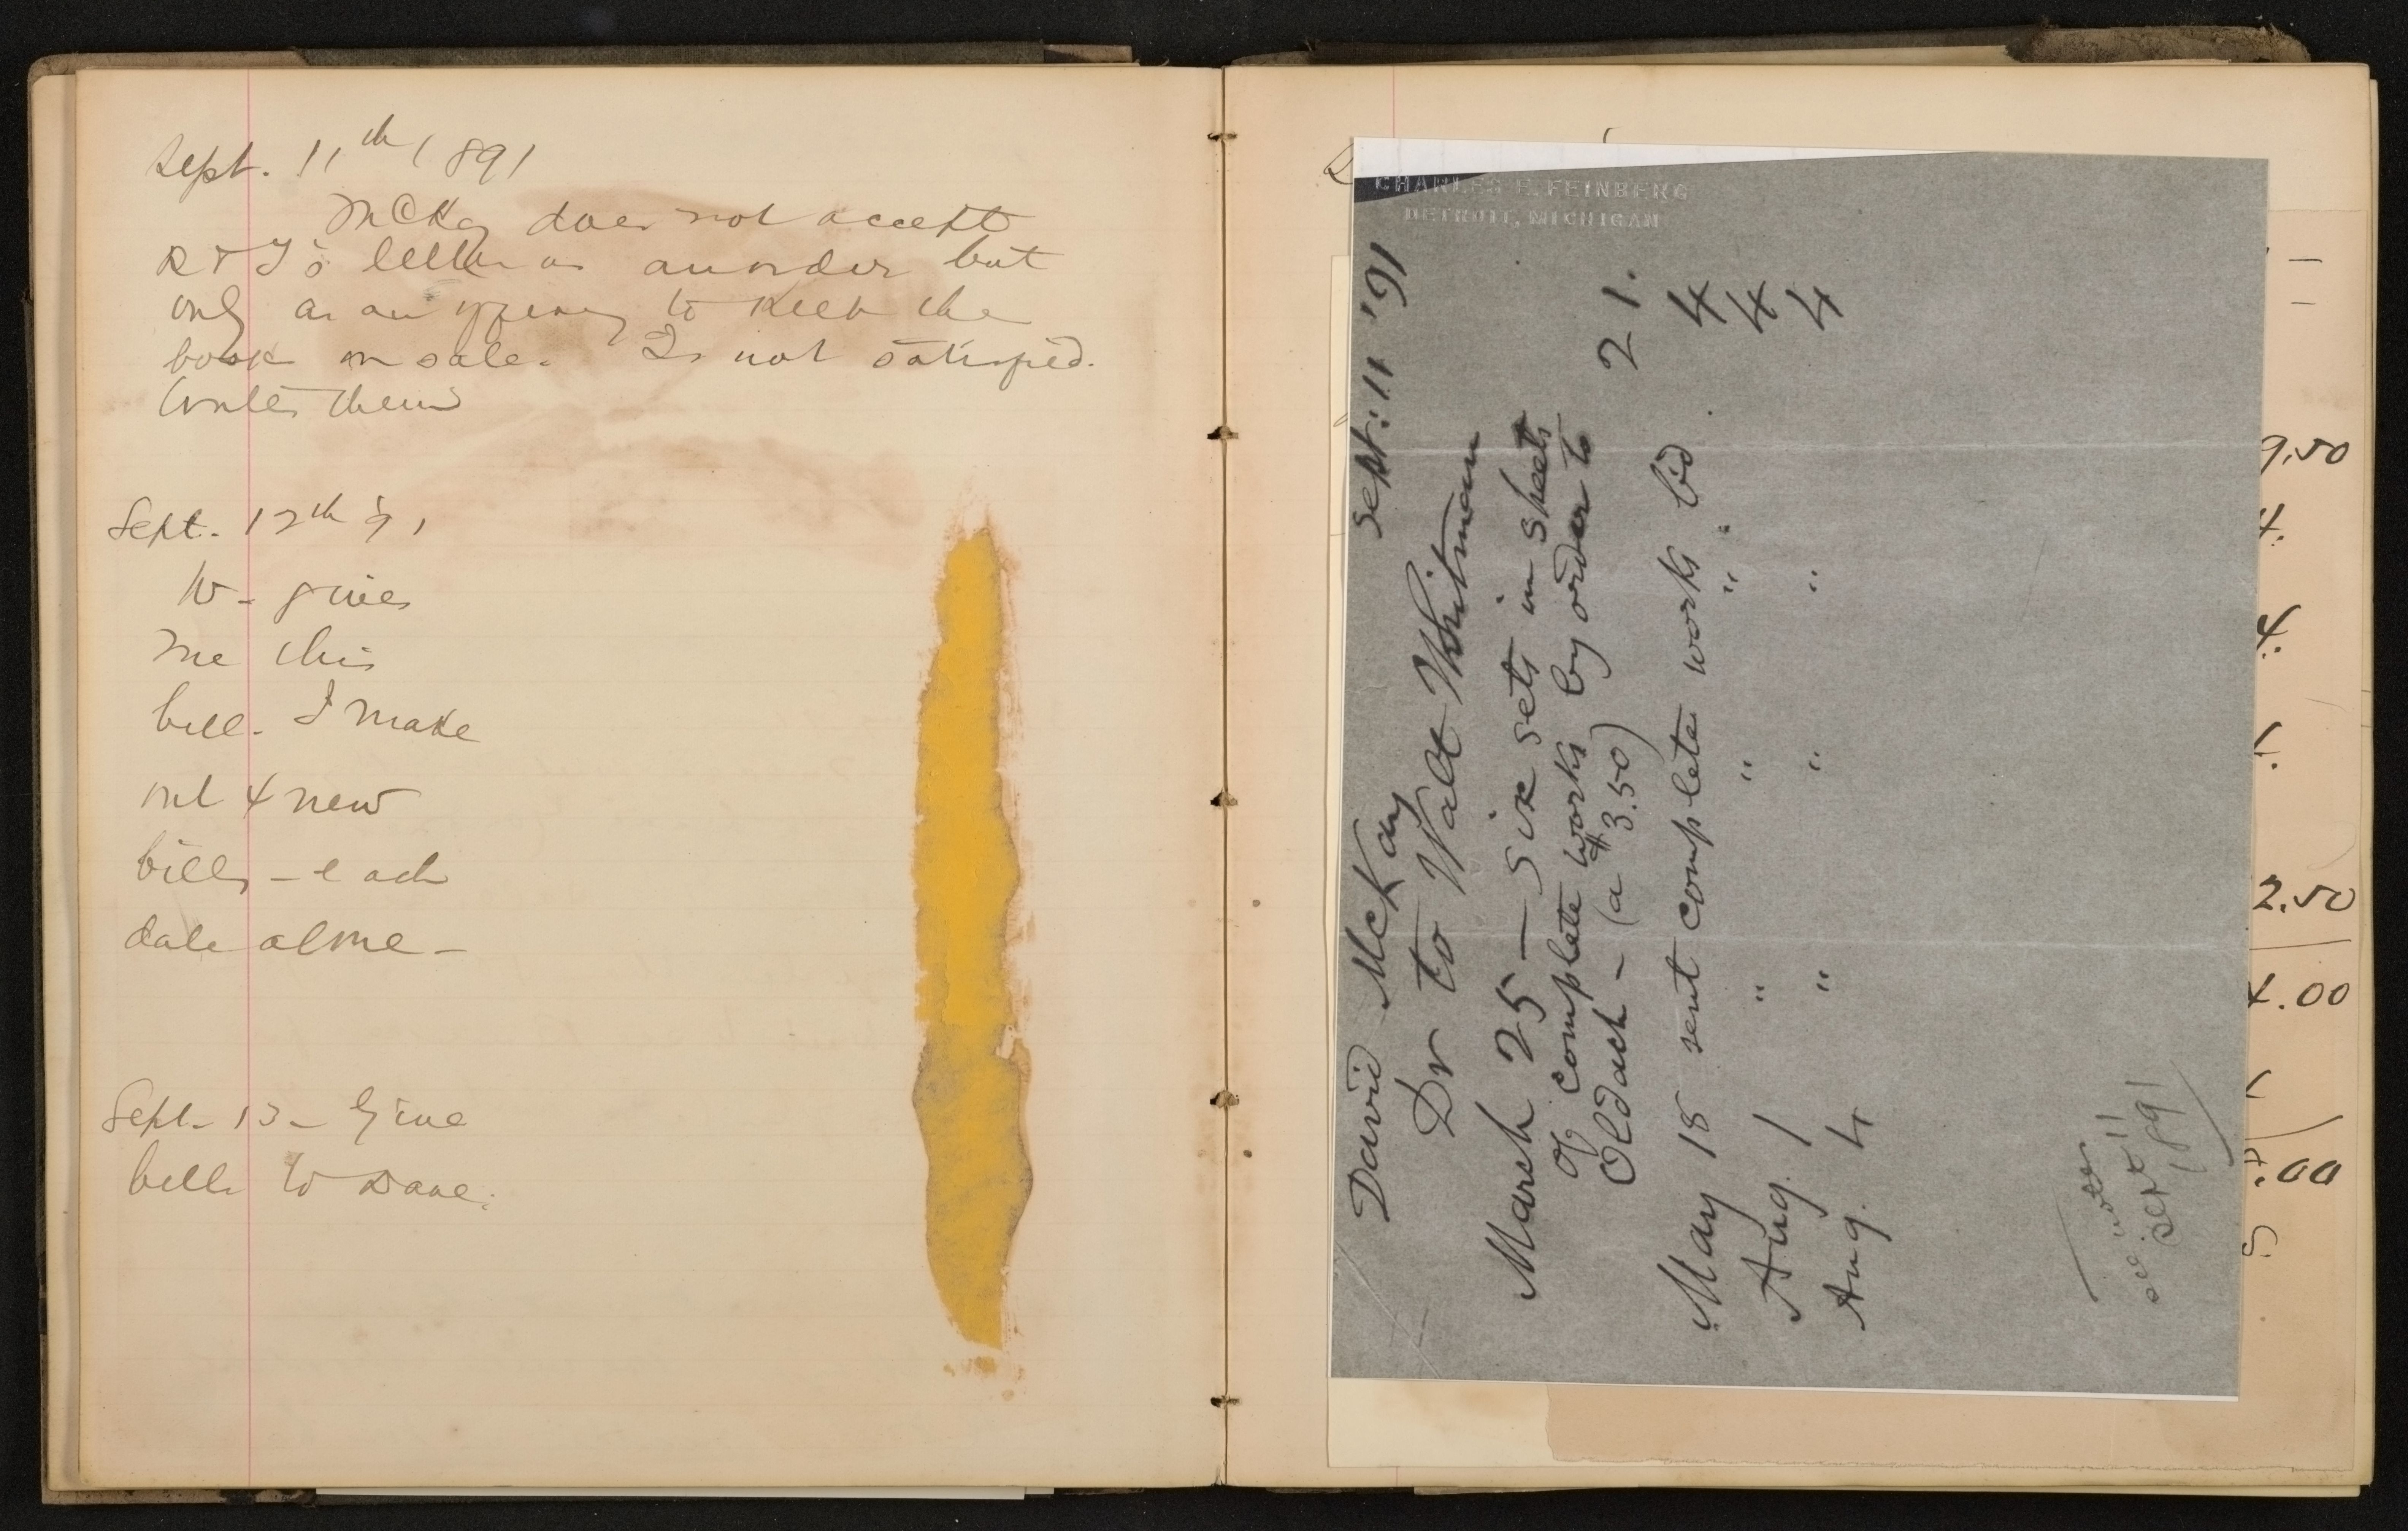 Sept. 11th 1891
McKay does not accept
R & T's letter as an order but
only as an to keep the
book on sale. Is not satisfied.
Writes them
Sept. 12th 91
W - gives
me this
bill. I make
out 4 new
bills - each
date alone -
Sept. 13 - Give
bills to Dave.
CHARLES E. FEINBERG
DETROIT, MICHIGAN
Sept: 11 '91
David McKay
Dr to Walt Whitman
March 25 - Six sets in sheets
of complete works by order to
Oldach - (a $3.50) 21.
May 18 sent complete works b'd 4
Aug. 1 " " " " 4
Aug. 4 " " " 4
see notes
Sept 11
1891
9.50
4.
4.
2.50
4.00
.00